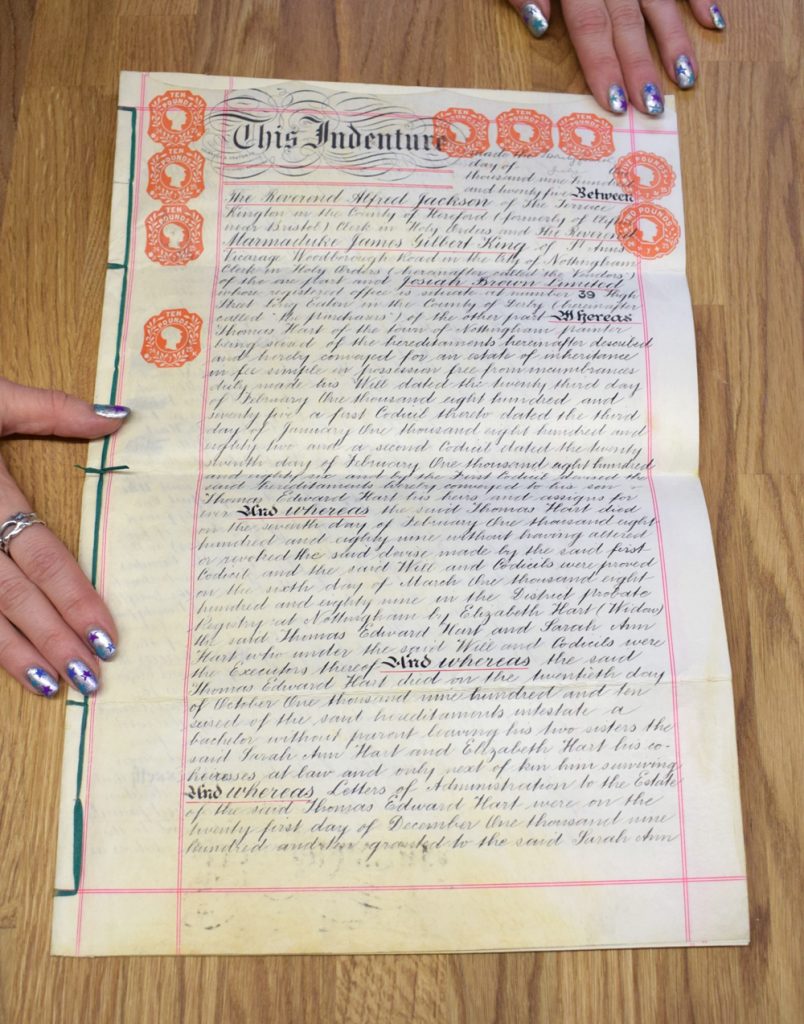 TEN POUNDS
TEN POUNDS
TEN POUNDS
TEN POUNDS
TEN POUNDS
TEN POUNDS
TEN POUNDS
TWO POUNDS
TWO POUNDS
This Indenture
made the
day of July One
thousand nine hundred
and twenty five Between
The Reverend Alfred Jackson of The Terrace
Kington in the County of Hereford (formerly of
near Bristol) Clerk in Holy Orders and The Reverend
Marmaduke James Gilbert King of St Anns
Vicarage Woodborough Road in the City of Nottingham
Clerk in Holy Orders (hereinafter called "the Vendors")
of the one part and Josiah Brown Limited
whose registered office is situate at number 39 High
Street Long Eaton in the County of Derby (hereinafter
called "the purchasers") of the other part Whereas
Thomas Hart of the town of Nottingham
being seised of the hereditaments hereinafter described
and hereby conveyed for an estate of inheritance
in fee simple in possession free from incumbrances
duly made his Will dated the twenty third day
of February One thousand eight hundred and
seventy five a first Codicil thereto dated the third
day of January One thousand eight hundred and
eighty two and a second Codicil dated the twenty
seventh day of February One thousand eight hundred
and eighty six and by the first Codicil devised the
said hereditaments hereby conveyed to his son
Thomas Edward Hart his heirs and assigns for
ever And whereas the said Thomas Hart died
on the seventh day of February One thousand eight
hundred and eighty nine without having altered
or revoked the said devise made by the said first
Codicil and the said Will and Codicils were proved
on the sixth day of March One thousand eight
hundred and eighty nine in the District Probate
Registry at Nottingham by Elizabeth Hart (Widow)
the said Thomas Edward Hart and Sarah Ann
Hart who under the said Will and Codicils were
the Executors thereof And whereas the said
Thomas Edward Hart died on the twentieth day
of October One thousand nine hundred and ten
seised of the said hereditaments intestate a
bachelor without parent leaving his two sisters the
said Sarah Ann Hart and Elizabeth Hart his co-
heiresses at law and only next of kin him surviving
And whereas Letters of Administration to the Estate
of the said Thomas Edward Hart were on the
twenty first day of December One thousand nine
hundred and ten granted to the said Sarah Ann